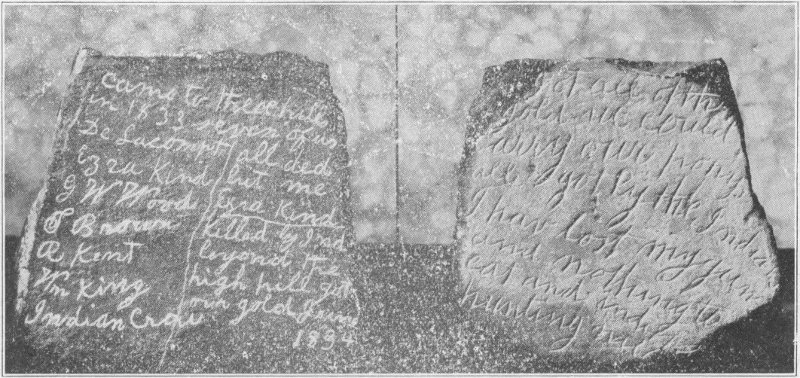 came to these hills
in 1833 seven of us
De Lacompt
Ezra Kind
G W Wood
T Brown
R Kent
Wm King
Indian Crow
all ded
but me
Ezra Kind
Killed by Ind
beyond the
high hill got
our gold June
1834
got all of the
gold we could
carry our ponys
all got by the Indian
I have lost my gun
and nothing to
eat and ind
hunting me